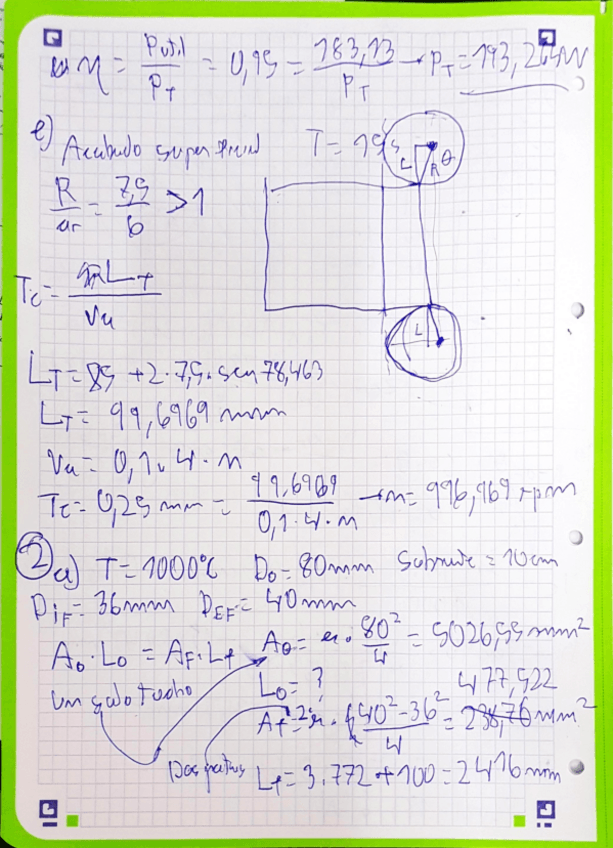 η = Putil / P_T = 0,95 = 183,13 / P_T → P_T = 193,26 W
e) Acabado superficial T = 15s
R / ar = 7,5 / 6 > 1
L R θ
Tc = L_T / Va
L
L_T = 85 + 2 · 7,5 · sen 78,463
L_T = 99,6969 mm
Va = 0,1 · 4 · n
Tc = 0,25 mm = 99,6969 / 0,1 · 4 · n → n = 996,969 rpm
② a) T = 1000°C D₀ = 80mm Sobrante = 10cm
D_iF = 36mm D_EF = 40mm
A₀ · L₀ = A_F · L_f A₀ = π · 80² / 4 = 5026,55 mm²
un solo tocho L₀ = ? 477,522
A_f = 2π · (40² - 36² / 4 = 238,76 mm²
Dos
L_f = 3 · 772 + 100 = 2416 mm